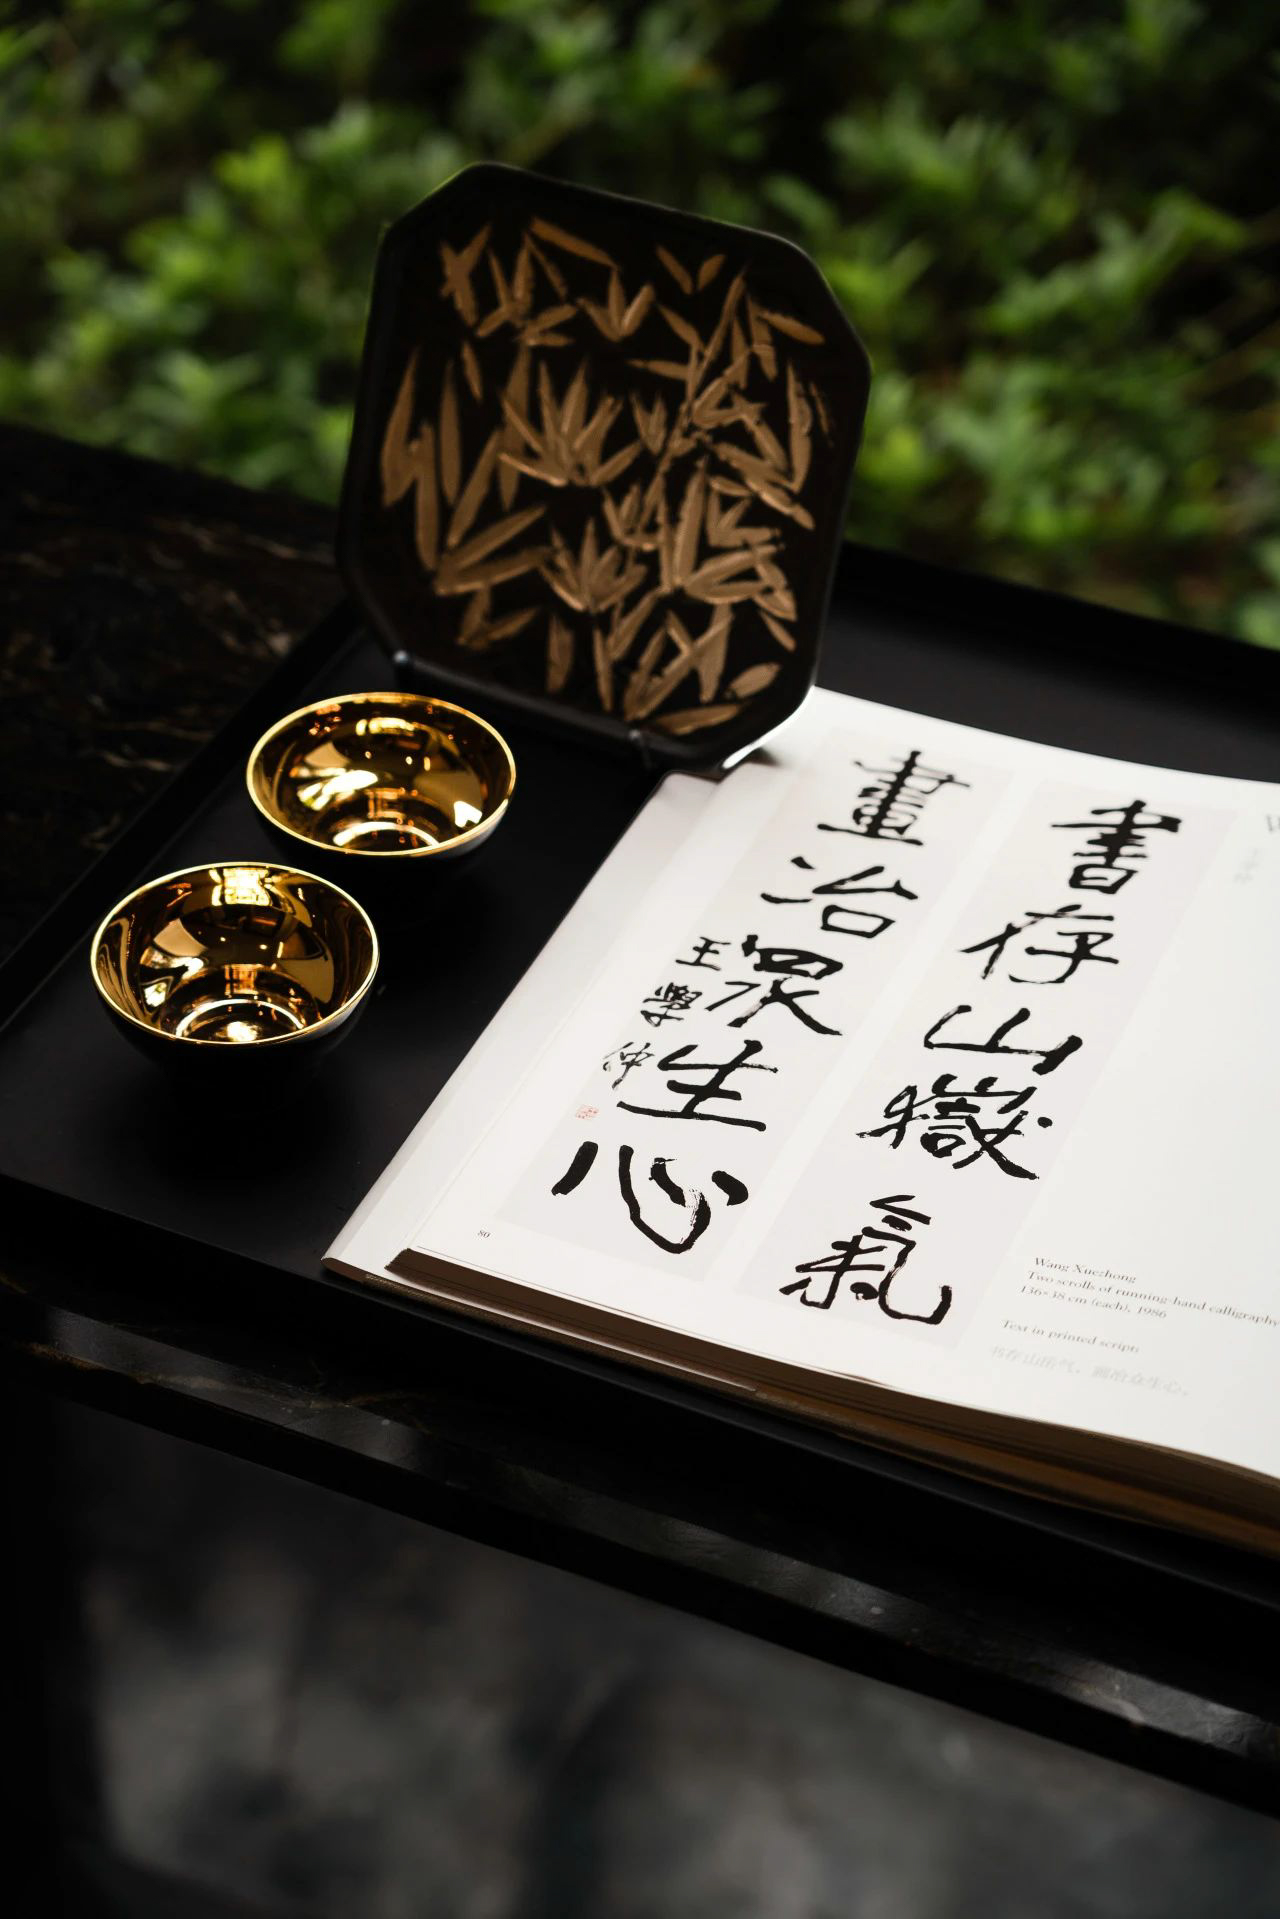 書存山嶽氣
畫治眾生心
王學仲
80
Wang Xuezhong
Two scrolls of running-hand calligraphy
136×38 cm (each), 1986
Text in printed script:
书存山岳气，画治众生心。